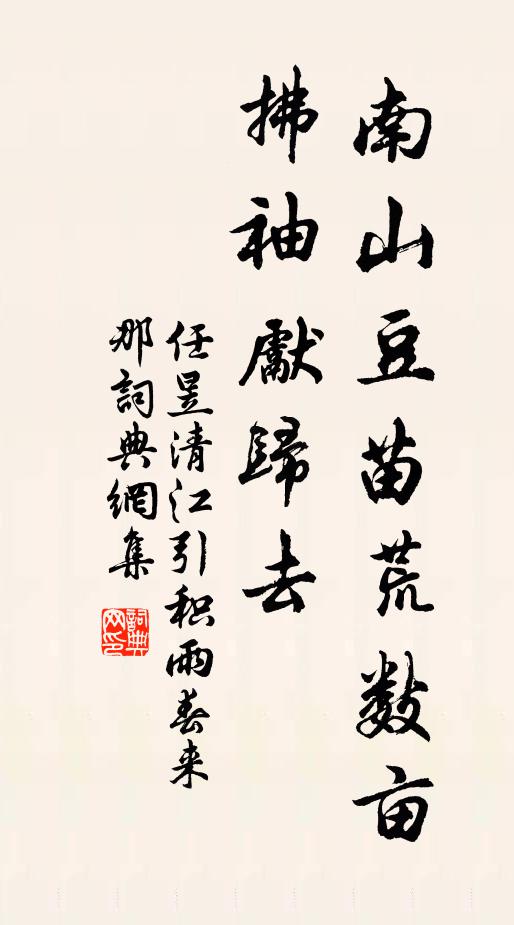 南山豆苗荒数亩
拂袖獻歸去
任昱清江引积雨春来
那詞典網集
詞典
网印